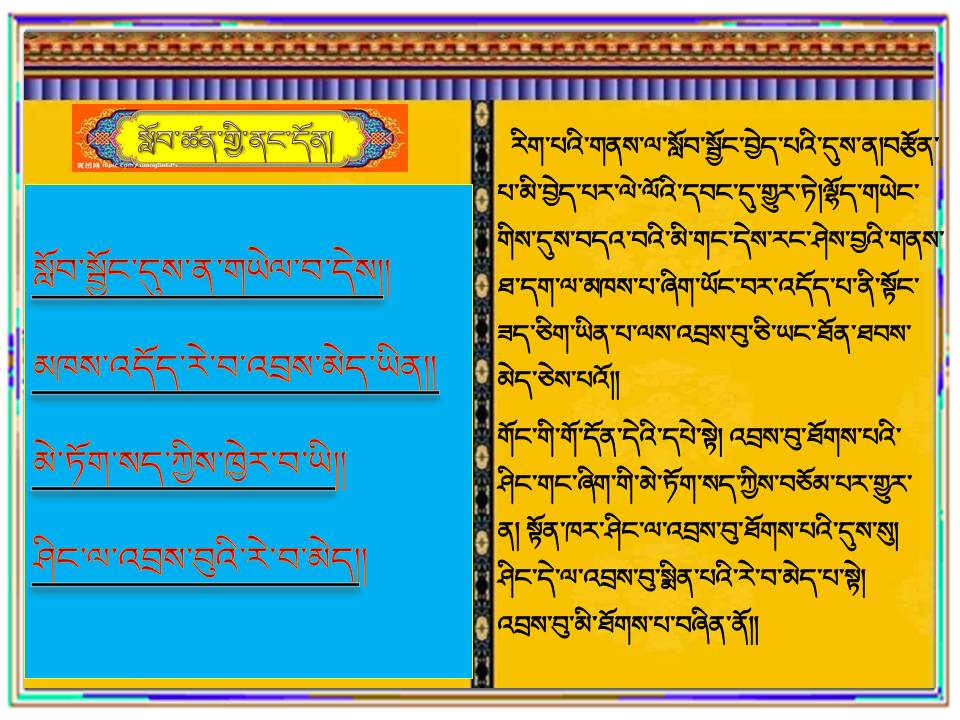 སློབ་ཚན་གྱི་ནང་དོན།
སློབ་སྦྱོང་དུས་ན་གཡེལ་བ་དེས།།
མཁས་འདོད་རེ་བ་འབྲས་མེད་ཡིན།།
མེ་ཏོག་སད་ཀྱིས་ཁྱེར་བ་ཡི།།
ཤིང་ལ་འབྲས་བུའི་རེ་བ་མེད།།
རིག་པའི་གནས་ལ་སློབ་སྦྱོང་བྱེད་པའི་དུས་ན།བརྩོན་
པ་མི་བྱེད་པར་ལེ་ལོའི་དབང་དུ་གྱུར་ཏེ།ལྷོད་གཡེང་
གིས་དུས་བདའ་བའི་མི་གང་དེས་རང་ཤེས་བྱའི་གནས་
ཐ་དག་ལ་མཁས་པ་ཞིག་ཡོང་བར་འདོད་པ་ནི་སྟོང་
ཟད་ཅིག་ཡིན་པ་ལས་འབྲས་བུ་ཅི་ཡང་ཐོན་ཐབས་
མེད་ཅེས་པའོ།།
གོང་གི་གོ་དོན་དེའི་དཔེ་སྟེ། འབྲས་བུ་ཐོགས་པའི་
ཤིང་གང་ཞིག་གི་མེ་ཏོག་སད་ཀྱིས་བཅོམ་པར་གྱུར་
ན། སྟོན་ཁར་ཤིང་ལ་འབྲས་བུ་ཐོགས་པའི་དུས་སུ།
ཤིང་དེ་ལ་འབྲས་བུ་སྨིན་པའི་རེ་བ་མེད་པ་སྟེ།
འབྲས་བུ་མི་ཐོགས་པ་བཞིན་ནོ།།